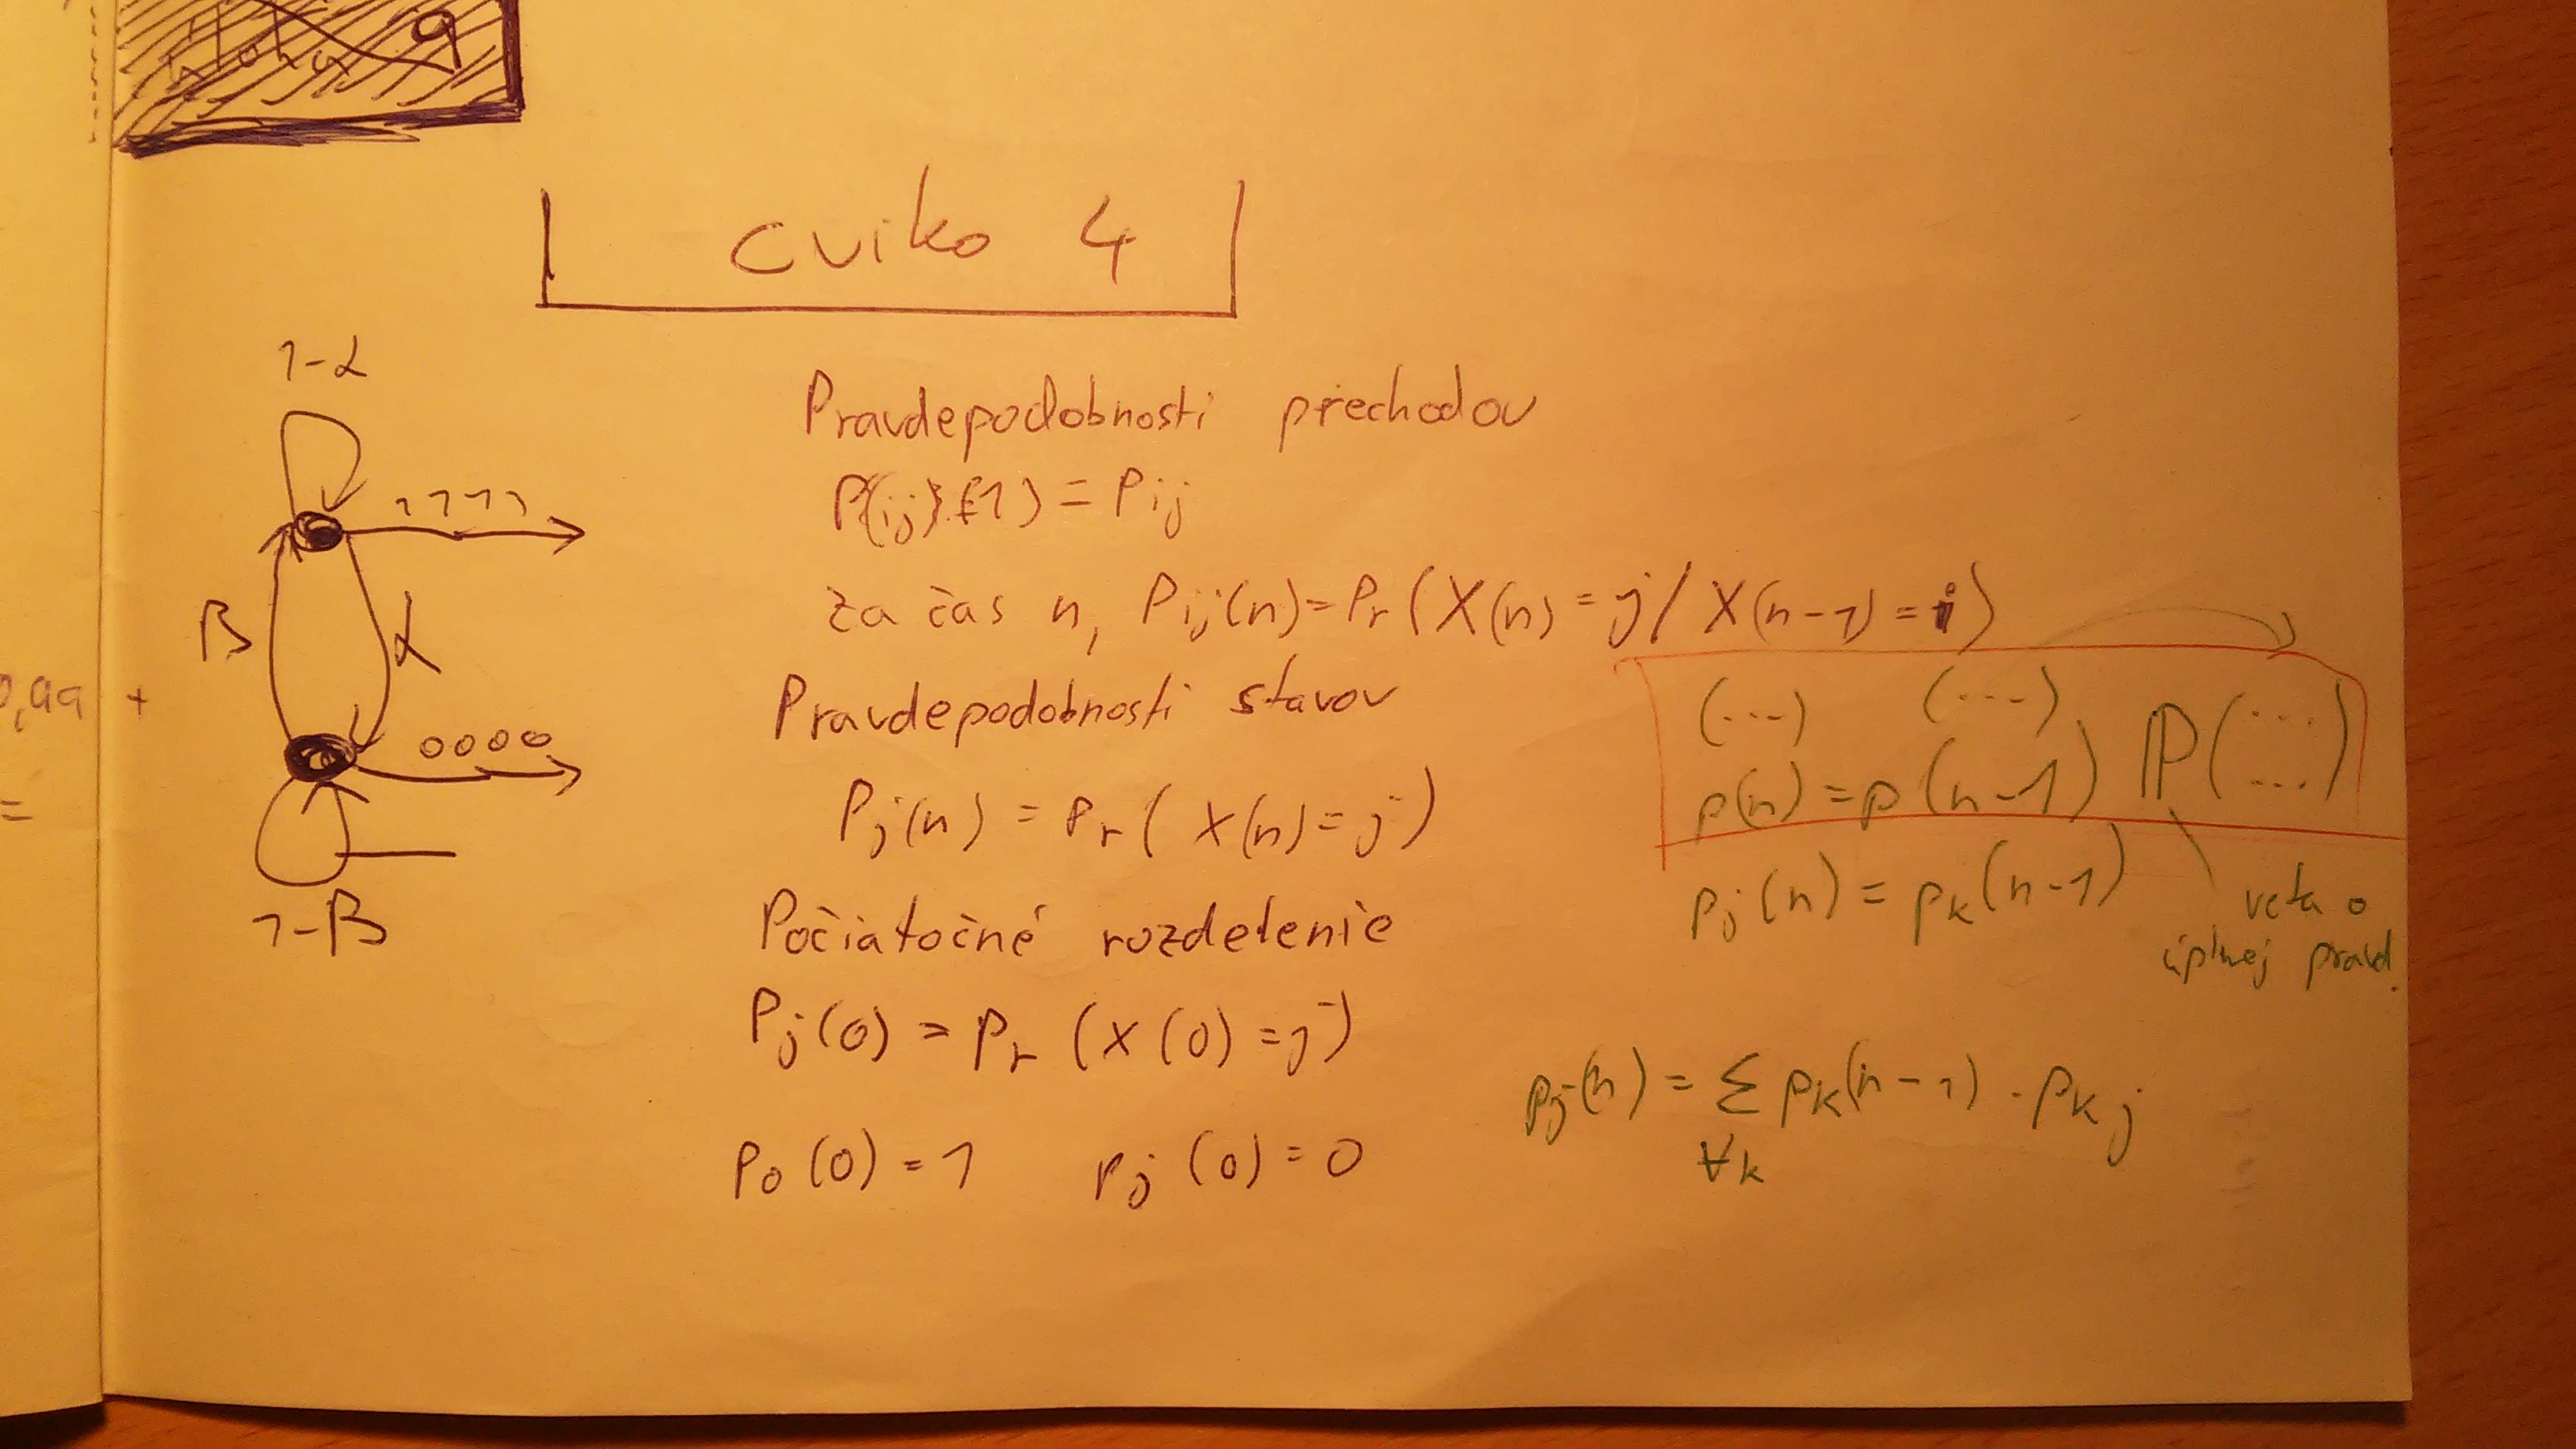 úloha 9
Cviko 4
1-α
1111
β
α
0000
1-β
0,99 +
=
Pravdepodobnosti prechodov
= Pij
za čas n, Pij(n) = Pr(X(n) = j / X(n-1) = i)
Pravdepodobnosti stavov
Pj(n) = Pr( X(n) = j )
Počiatočné rozdelenie
Pj(0) = Pr (X(0) = j)
P0(0) = 1 Pj(0) = 0
(...) (...)
p(n) = p(n-1) ℙ(... ...)
pj(n) = pk(n-1)
veta o
úplnej pravd.
pj(n) = Σ pk(n-1) . pkj
∀k